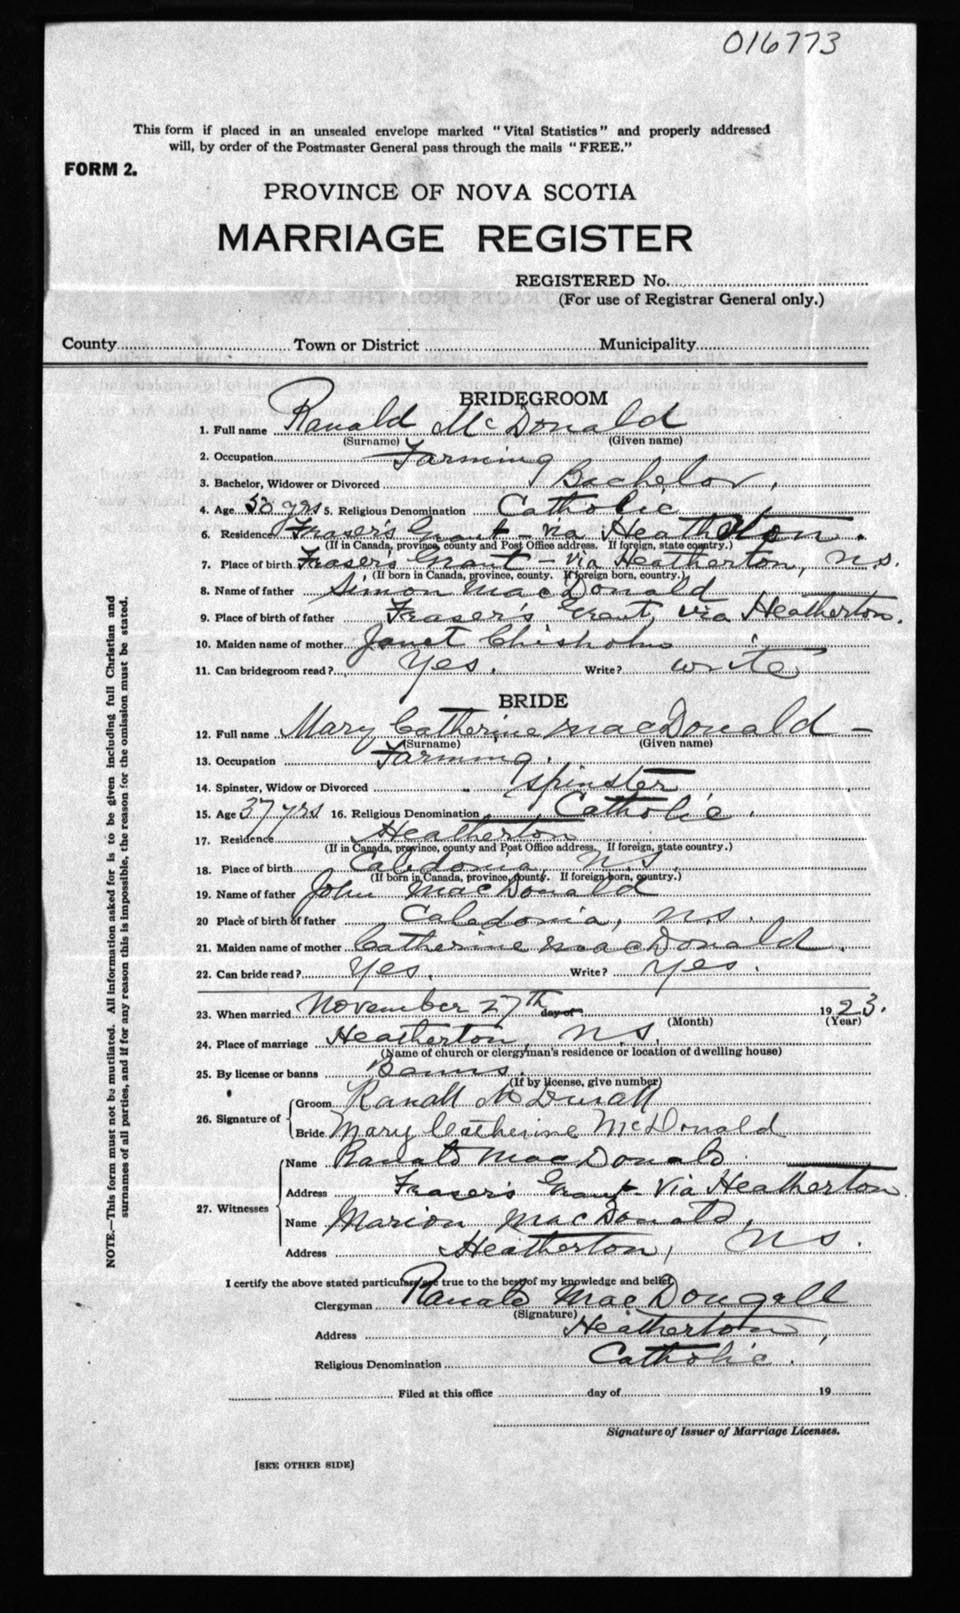 016773
This form if placed in an unsealed envelope marked "Vital Statistics" and properly addressed
will, by order of the Postmaster General pass through the mails "FREE."
FORM 2.
PROVINCE OF NOVA SCOTIA
MARRIAGE REGISTER
REGISTERED No.
(For use of Registrar General only.)
County Town or District Municipality
BRIDEGROOM
1. Full name Ranald McDonald
(Surname) (Given name)
2. Occupation Farming
3. Bachelor, Widower or Divorced Bachelor.
4. Age 50 yrs 5. Religious Denomination Catholic
6. Residence Fraser's Grant - via Heatherton.
(If in Canada, province, county and Post Office address. If foreign, state country.)
7. Place of birth Fraser's Grant - via Heatherton, N.S.
(If born in Canada, province, county. If foreign born, country.)
8. Name of father Simon MacDonald
9. Place of birth of father Fraser's Grant, via Heatherton.
10. Maiden name of mother Janet Chisholm
11. Can bridegroom read? Yes. Write? write
BRIDE
12. Full name Mary Catherine MacDonald -
(Surname) (Given name)
13. Occupation Farming.
14. Spinster, Widow or Divorced spinster
15. Age 37 yrs 16. Religious Denomination Catholic.
17. Residence Heatherton
(If in Canada, province, county and Post Office address. If foreign, state country.)
18. Place of birth Caledonia, N.S.
(If born in Canada, province, county. If foreign born, country.)
19. Name of father John MacDonald
20 Place of birth of father Caledonia, N.S.
21. Maiden name of mother Catherine MacDonald.
22. Can bride read? Yes. Write? Yes.
23. When married November 27th day of 1923.
(Month) (Year)
24. Place of marriage Heatherton, N.S.
(Name of church or clergyman's residence or location of dwelling house)
25. By license or banns Banns.
(If by license, give number)
26. Signature of Groom Ranald McDonald
Bride Mary Catherine McDonald
27. Witnesses Name Ranald MacDonald.
Address Fraser's Grant - via Heatherton
Name Marion MacDonald,
Address Heatherton, N.S.
I certify the above stated particulars are true to the best of my knowledge and belief.
Clergyman Ranald MacDougall
(Signature)
Address Heatherton,
Religious Denomination Catholic.
Filed at this office day of 19
Signature of Issuer of Marriage Licenses.
[SEE OTHER SIDE]
NOTE.—This form must not be mutilated. All information asked for is to be given including full Christian and
surnames of all parties, and if for any reason this is impossible, the reason for the omission must be stated.